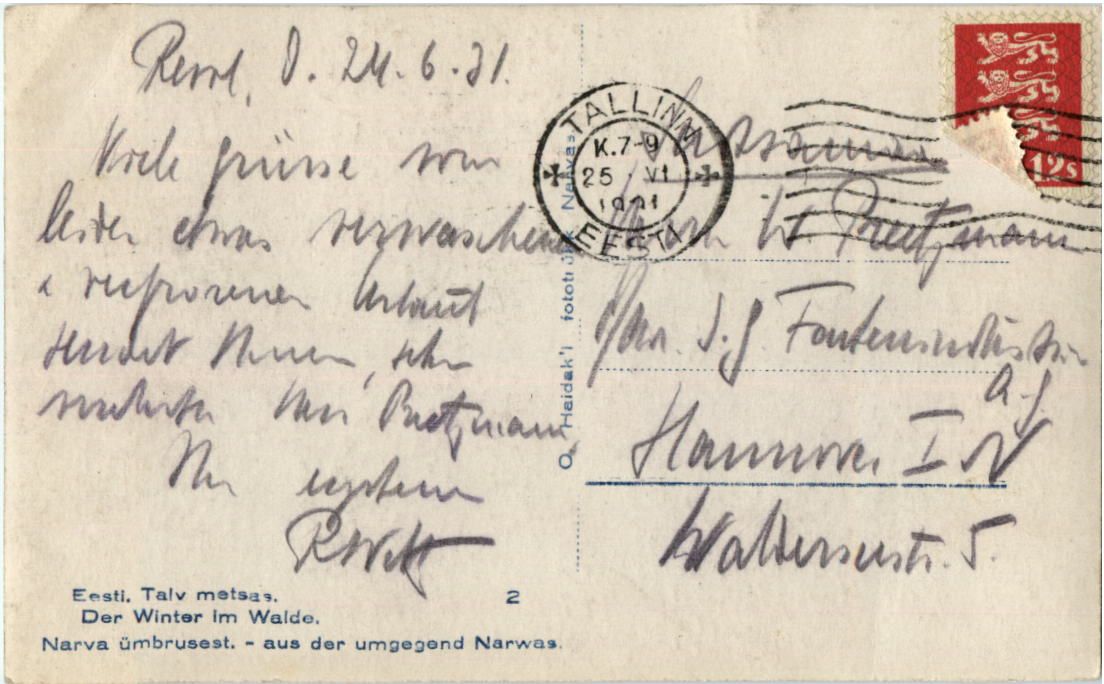 Reval, d. 24.6.31.
Viele grüsse vom
leider etwas verwaschenen
u verfrorenen Urlaub
sendet Ihnen, sehr
verehrter Herr Pretzmann,
Ihr ergebener
Eesti. Talv metsas.
Der Winter im Walde.
Narva ümbrusest. - aus der umgegend Narwas.
2
O. Haidak'i fototrükk Narvas.
TALLINN
K.7-9
25 VI
1931
EESTI
12s
Herrn W. Pretzmann
I.G. Farbenindustrie
A.G
Hannover I N
Walderseestr. 5.